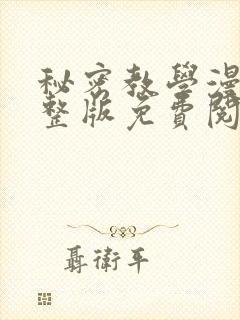 秘密教學漫
整版免費閱
聶衛平